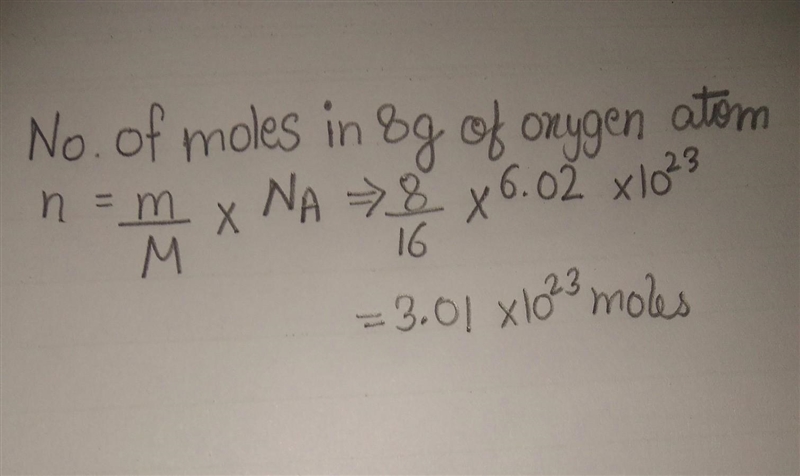 No. of moles in 8g of oxygen atom
n = m/M × NA ⇒ 8/16 × 6.02 × 10²³
= 3.01 × 10²³ moles